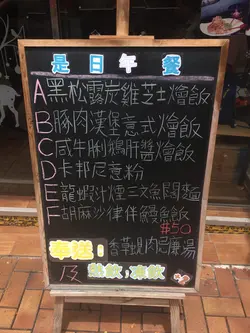 是日午餐
A黑松露炭雞芝士燴飯
B豚肉漢堡意式燴飯
C咸牛脷鵝肝醬燴飯
D卡邦尼意粉
E龍蝦汁煙三文魚闊麵
F胡麻沙律伴鰻魚飯
$50
奉送:香草蜆肉忌廉湯
及熱飲/凍飲